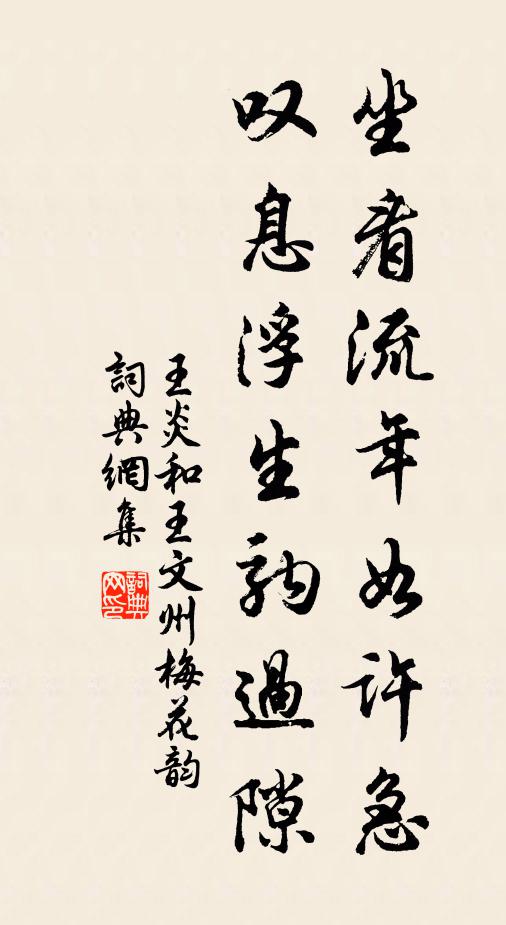 坐看流年如許急
叹息浮生駒過隙
王炎和王文州梅花韵
詞典網集
詞典网印